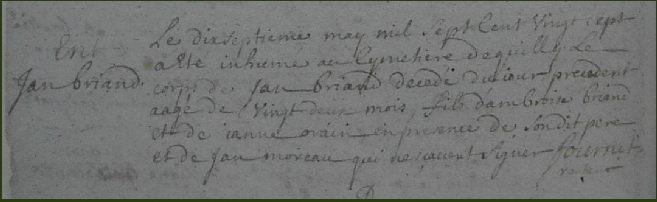 Ent
Jan briand
Le dixseptieme may mil sept Cent vingt sept
a Eté inhumé au Cymetiere dequilly Le
corps de Jan briand decedé du iour precedent
aagé de vingt deux mois, fils dambroise briand
et de ianne orain en presence de son dit pere
et de Jan moreau qui ne sçavent signer Journet